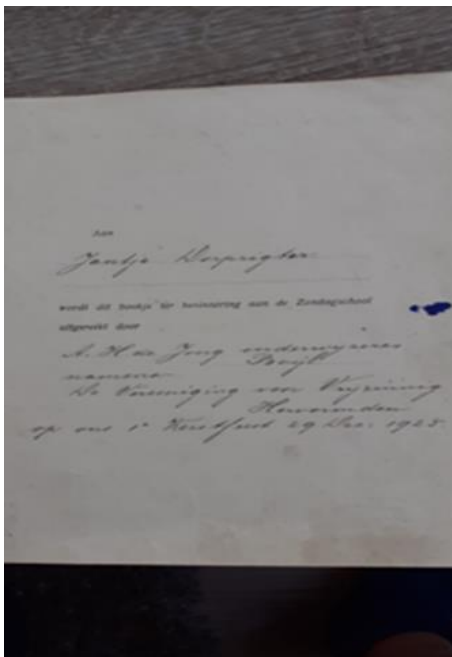 Aan
Jantje Dorprigter
wordt dit boekje ter herinnering aan de Zondagschool
uitgereikt door
A. H de Jong onderwijzeres
namens
De Vereeniging voor Vrijzinnig
Hervormden
op ons 1e Kerstfeest 29 Dec. 1925